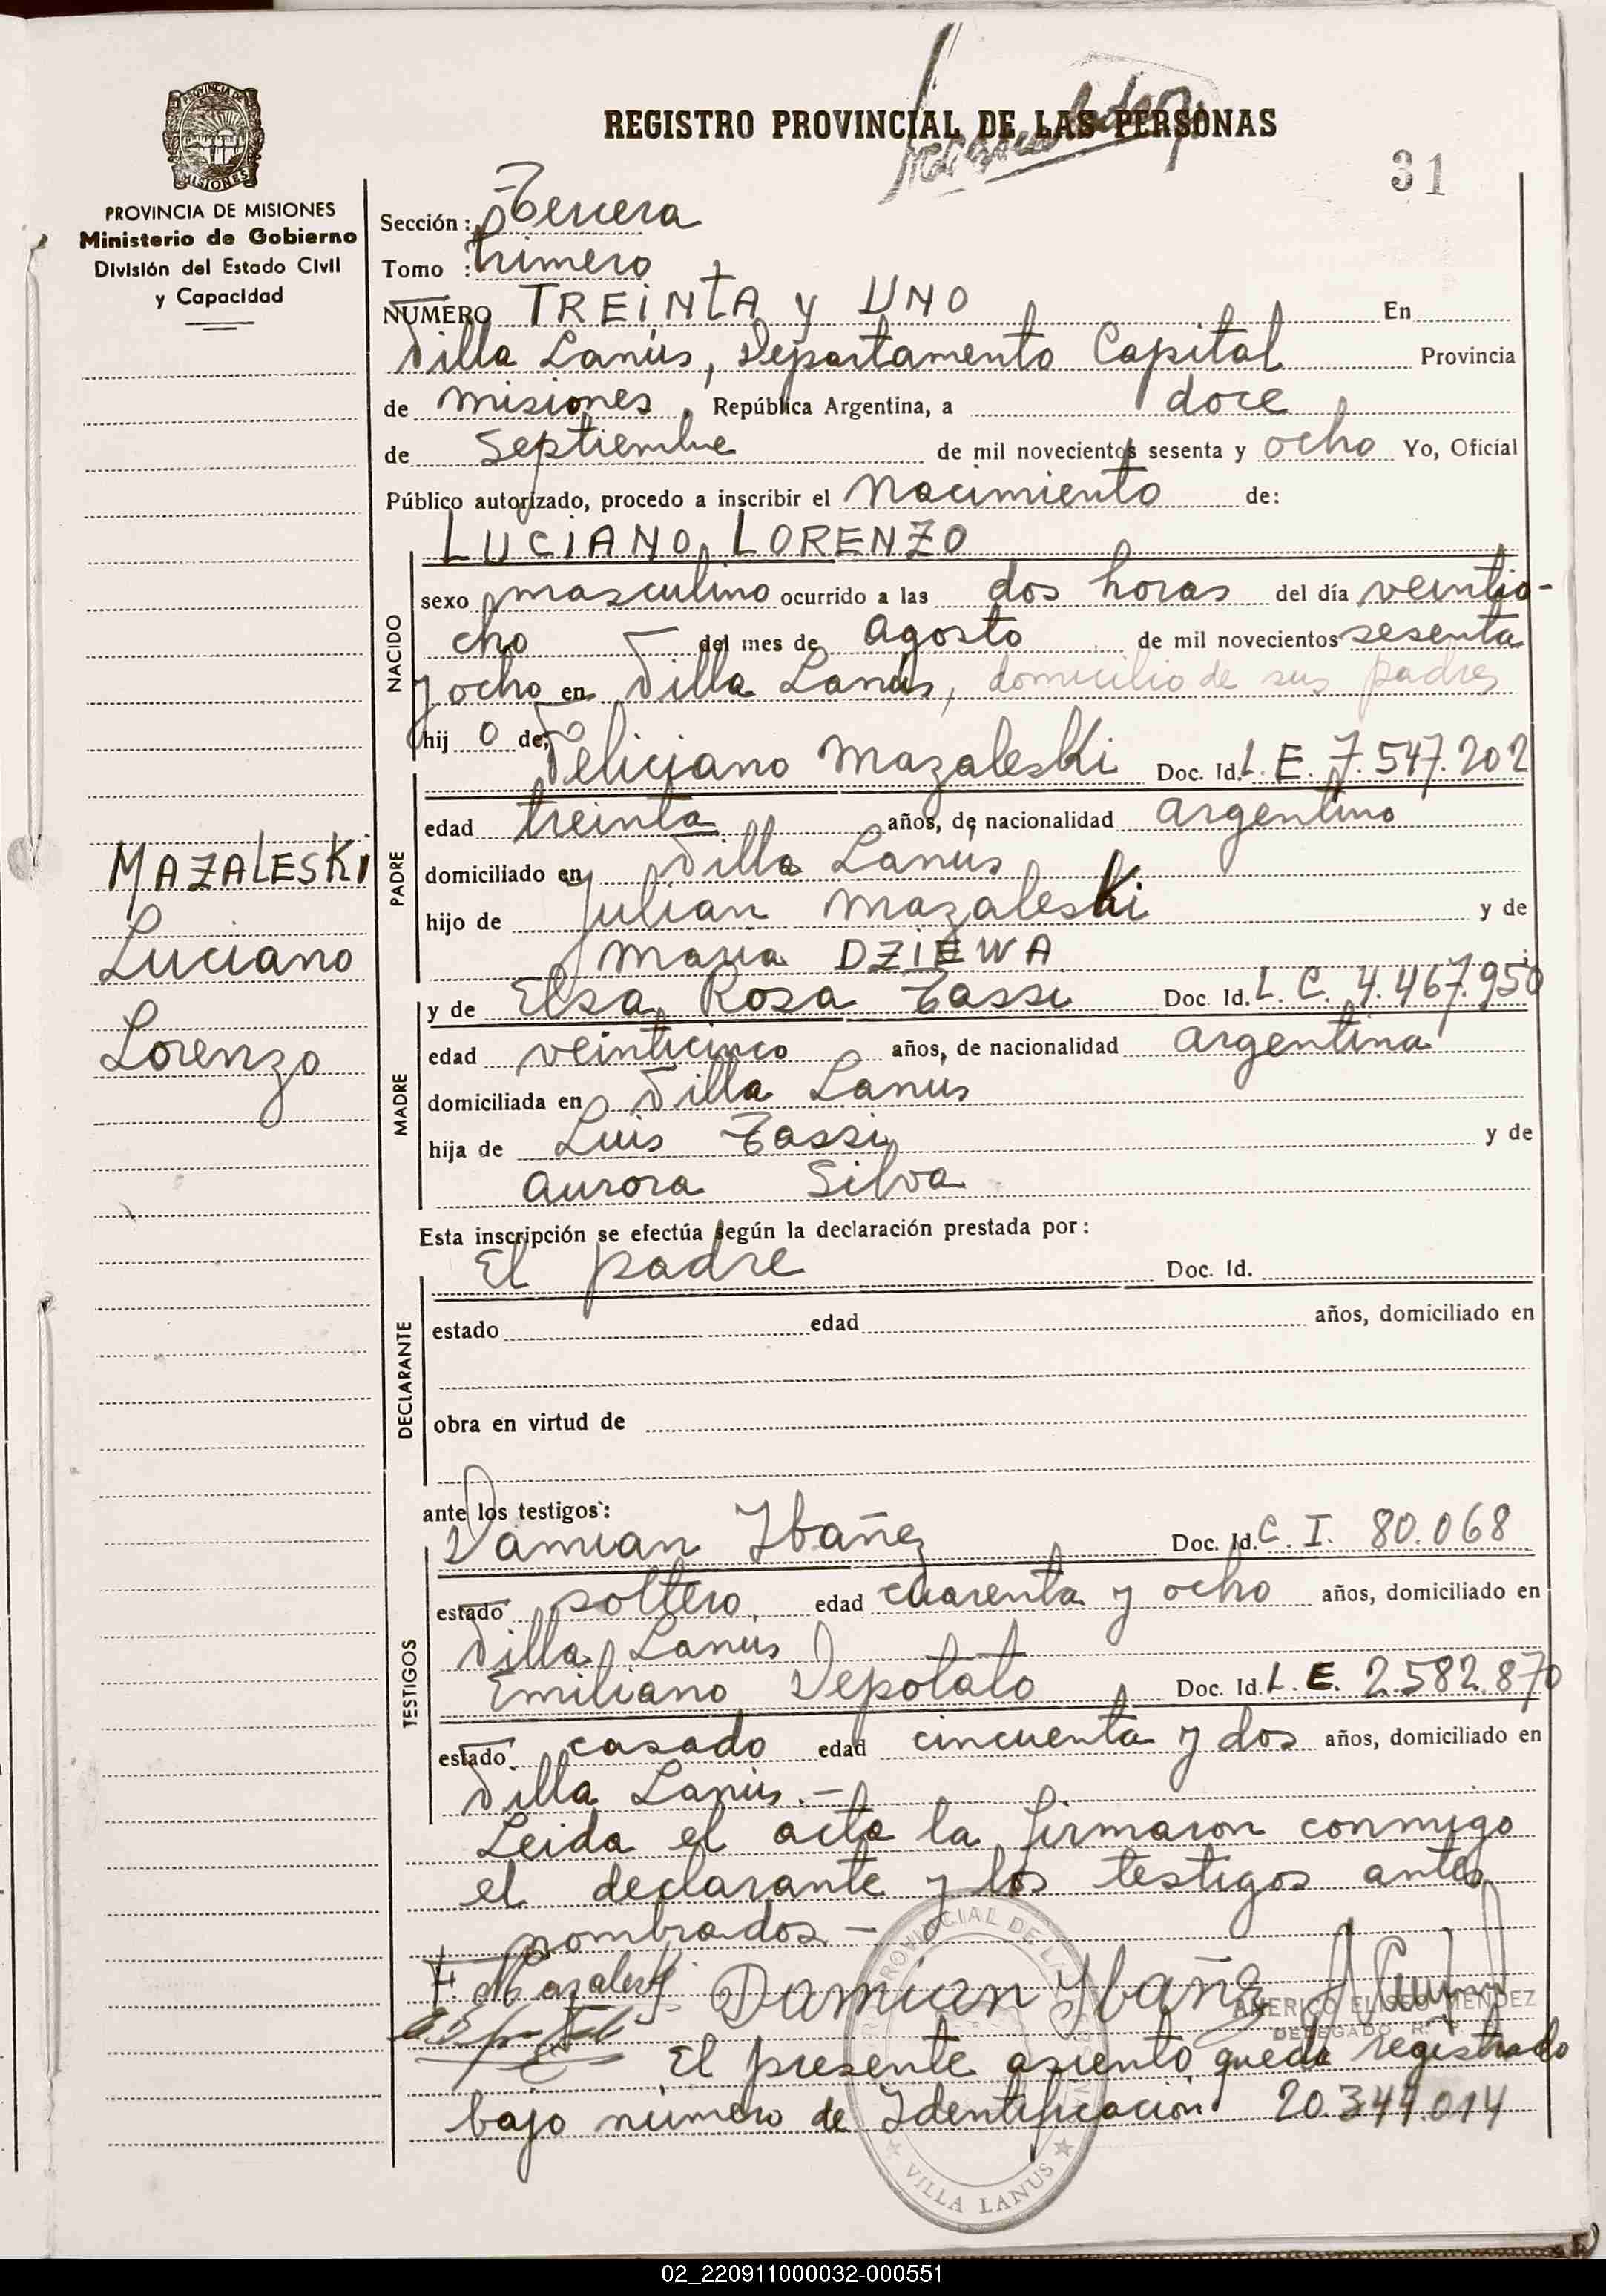 REGISTRO PROVINCIAL DE LAS PERSONAS
31
PROVINCIA DE MISIONES
PROVINCIA DE MISIONES
Ministerio de Gobierno
División del Estado Civil
y Capacidad
Sección: Tercera
Tomo : Primero
NUMERO TREINTA y UNO En
Villa Lanús, Departamento Capital Provincia
de Misiones, República Argentina, a doce
de Septiembre de mil novecientos sesenta y ocho Yo, Oficial
Público autorizado, procedo a inscribir el Nacimiento de:
LUCIANO LORENZO
NACIDO
sexo masculino ocurrido a las dos horas del día veintio-
cho — del mes de Agosto de mil novecientos sesenta
y ocho en Villa Lanús, domicilio de sus padres
hij o de:
Feliciano Mazaleski Doc. Id. L. E. 7.547.202
PADRE
edad treinta años, de nacionalidad argentino
domiciliado en Villa Lanús
hijo de Julian Mazaleski y de
Maria DZIEWA
y de Elsa Rosa Tassi Doc. Id. L. C. 4.467.950
MADRE
edad veinticinco años, de nacionalidad argentina
domiciliada en Villa Lanús
hija de Luis Tassi y de
Aurora Silva
MAZALESKI
Luciano
Lorenzo
Esta inscripción se efectúa según la declaración prestada por:
El padre Doc. Id.
DECLARANTE
estado edad años, domiciliado en
obra en virtud de
ante los testigos:
Damian Ibañez Doc. Id. C. I. 80.068
TESTIGOS
estado soltero, edad cuarenta y ocho años, domiciliado en
Villa Lanus
Emiliano Depotato Doc. Id. L. E. 2.582.870
estado casado edad cincuenta y dos años, domiciliado en
Villa Lanús.—
Leida el acta la firmaron conmigo
el declarante y los testigos antes
nombrados —
F. Mazaleski Damian Ibañez
AMERICO ELISEO MENDEZ
DELEGADO R.
El presente asiento queda registrado
bajo número de Identificación 20.344.014
PROVINCIAL DE LA
VILLA LANUS
02_220911000032-000551